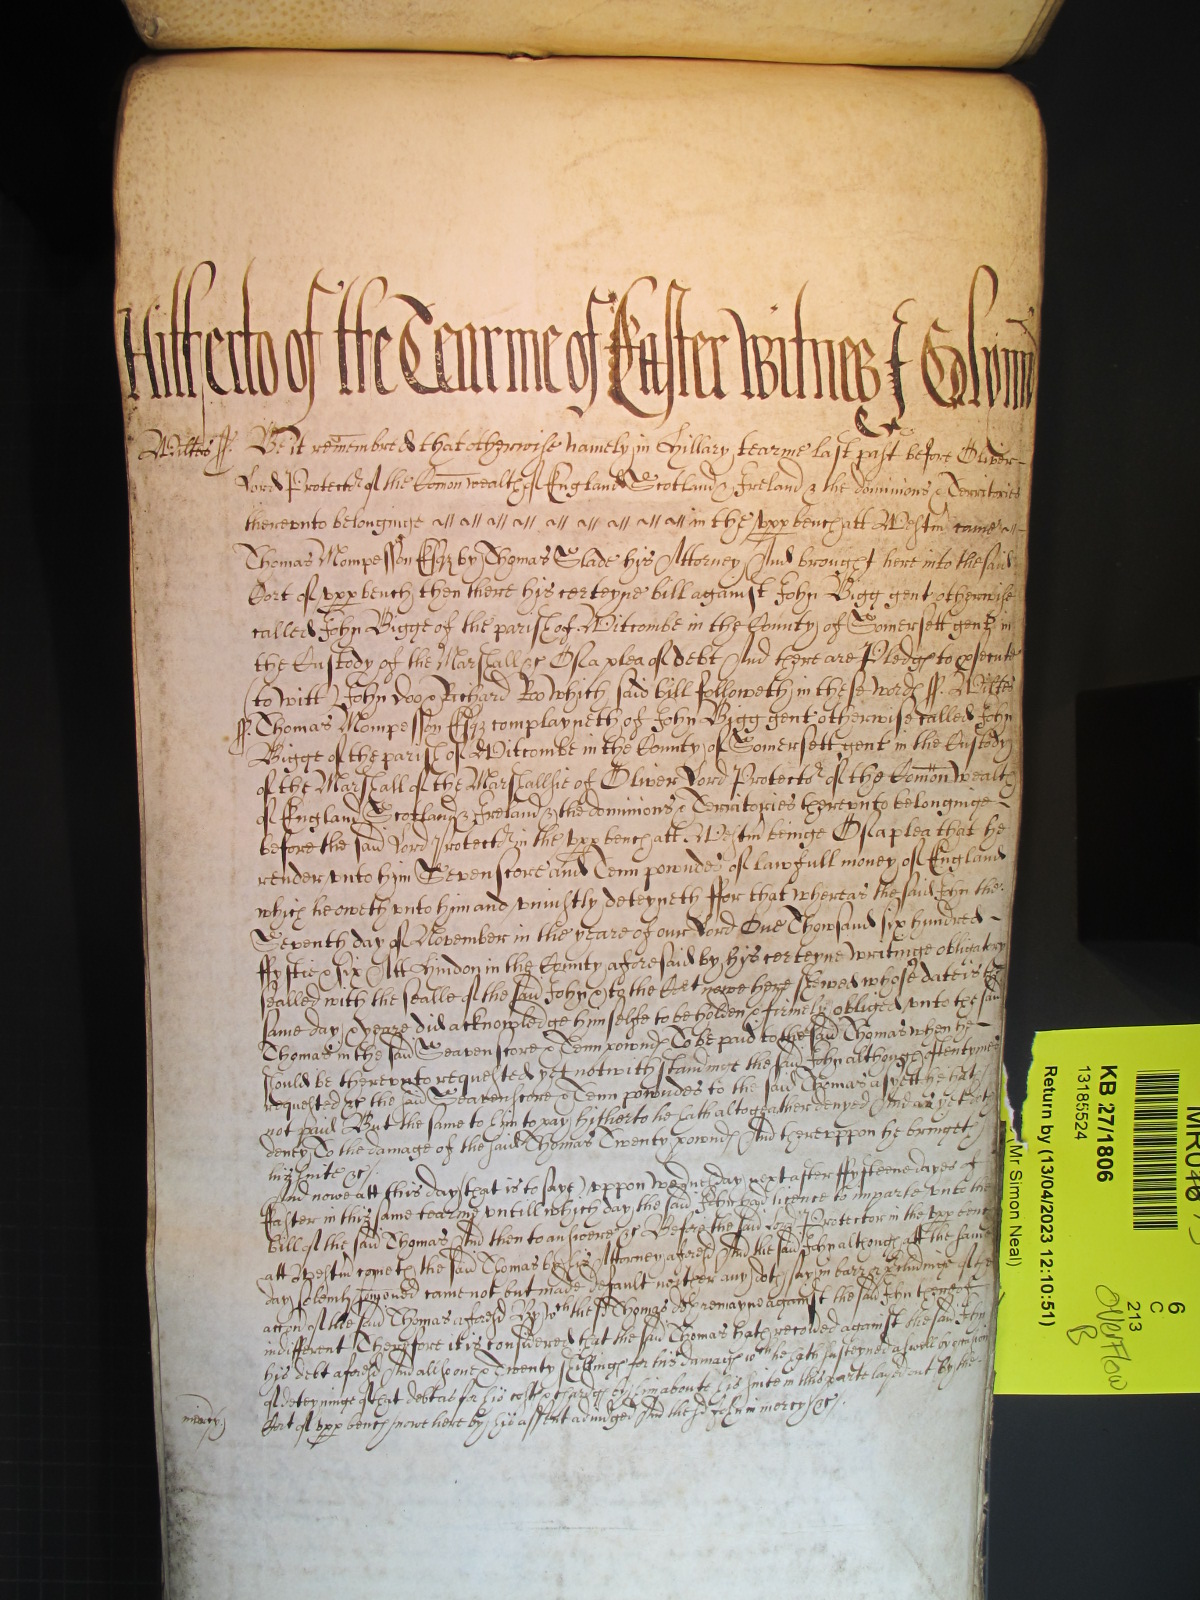 Hitherto of the Tearme of Easter Witnes J Glynn
Wiltes ff. Be it remembred that otherwise namely in Hillary tearme last past before Oliver
Lord Protector of the Comon wealth of England Scotland & Ireland & the dominions & Territories
therevnto belonginge in the vpp bench att Westm came
Thomas Mompesson Esqr by Thomas Slade his Attorney And brought here into the said
Cort of vpp bench then there his certeyne bill against John Bigg gent otherwise
called John Bigge of the parish of Witcombe in the County of Somersett gent in
the Custody of the Marshall &c Of a plea of debt And there are Pledges to prosecute
(to witt) John Doo & Richard Roo which said bill followeth in these words ff. Wiltes
ff. Thomas Mompesson Esqr complayneth of John Bigg gent otherwise called John
Bigge of the parish of Witcombe in the County of Somersett gent in the Custody
of the Marshall of the Marshallsie of Oliver Lord Protector of the Comon wealth
of England Scotland & Ireland & the dominions & Territories therevnto belonginge
before the said Lord Protector in the vpp bench att Westm beinge Of a plea that he
render vnto him Seven score and Tenn powndes of lawfull money of England
which he oweth vnto him and vniustly deteyneth ffor that whereas the said John the
Seventh day of November in the yeare of our Lord One Thowsand six hundred
ffyftie & six Att Hindon in the County aforesaid by his certeyne writinge obligatory
sealled with the sealle of the said John & to the Cort nowe here shewed whose date is the
same day & yeare did acknowledge himselfe to be holden & firmely obliged vnto the said
Thomas in the said Seaven score & Tenn pownds To be paid to the said Thomas when he
should be therevnto requested yet notwithstandinge the said John although oftentymes
requested &c the said Seaven score & Tenn powndes to the said Thomas as yett he hath
not paid But the same to him to pay hitherto he hath altogeather denyed And as yet doth
deney To the damage of the said Thomas Twenty pownds And therevppon he bringeth
his suite &c.
And nowe att this day (that is to saye) vppon Wednesday next after ffyfteene dayes of
Easter in this same tearme vntill which day the said John had licence to imparle vnto the
bill of the said Thomas And then to answere &c Before the said Lord Protector in the vpp bench
att Westm cometh the said Thomas by his Attorney aforesd And the said John although att the same
day solemly comoned came not but made default neither any doth say in barr or excludinge of the
action of the said Thomas aforesd By wch the sd Thomas doth remayne against the said John thereof
indifferent Therefore it is considered that the said Thomas hath recoverd against the said John
his debt aforesd And allsoe one & Twenty shillings for his damages wch he hath susteyned aswell by occasion
of deteyninge of that debt as for his costs & charges by him aboute his suite in this parte layed out by the
Cort of vpp bench nowe here by his assent adiudged And the sd John in mercy &c.
mercy
KB 27/1806
13185524
Return by (13/04/2023 12:10:51)
(Mr Simon Neal)
6
C
213
Overflow
B